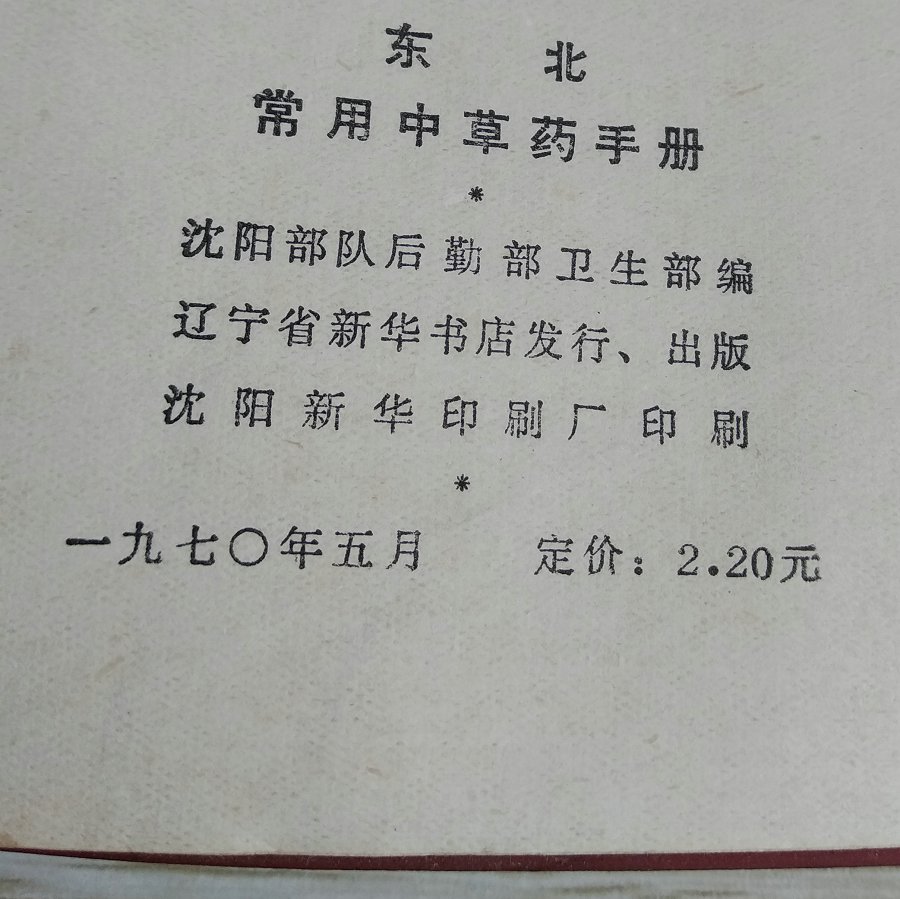 东北
常用中草药手册
*
沈阳部队后勤部卫生部编
辽宁省新华书店发行、出版
沈阳新华印刷厂印刷
*
一九七〇年五月 定价：2.20元